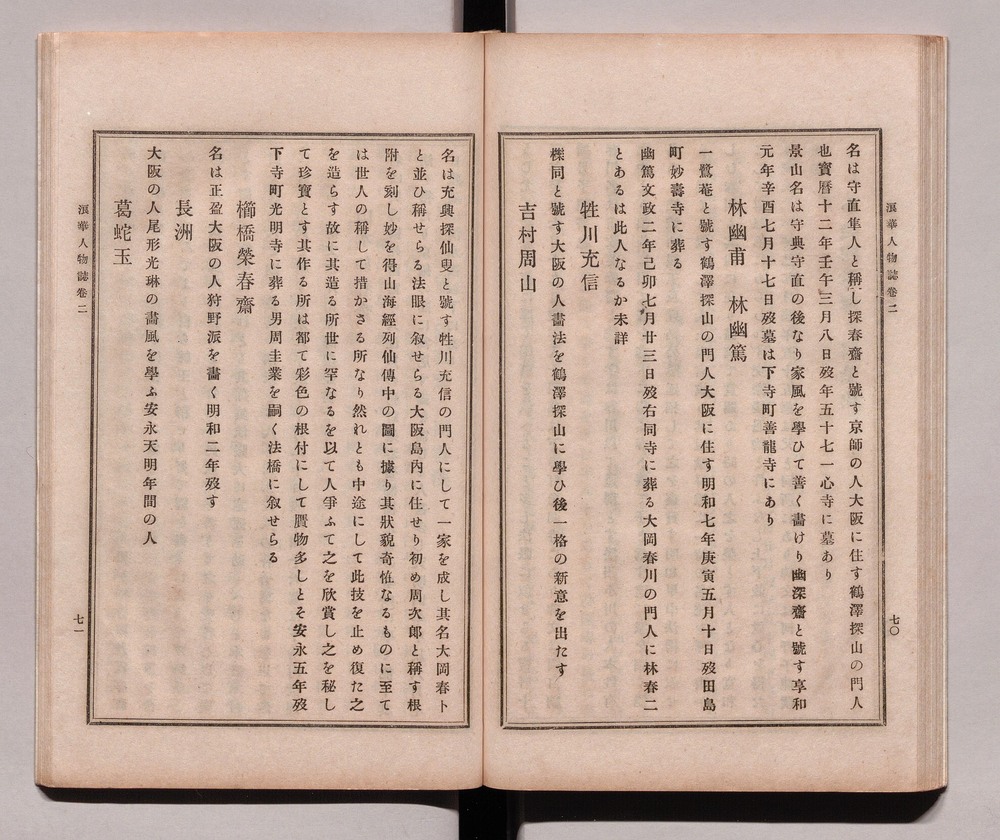 浪華人物誌卷二
七〇
名は守直隼人と稱し探春齋と號す京師の人大阪に住す鶴澤探山の門人
也寳曆十二年壬午三月八日歿年五十七一心寺に墓あり
景山名は守典守直の後なり家風を學ひて善く畵けり幽深齋と號す享和
元年辛酉七月十七日歿墓は下寺町善龍寺にあり
林幽甫　林幽篤
一鷺菴と號す鶴澤探山の門人大阪に住す明和七年庚寅五月十日歿田島
町妙壽寺に葬る
幽篤文政二年己卯七月廿三日歿右同寺に葬る大岡春川の門人に林春二
とあるは此人なるか未詳
牲川充信
檪同と號す大阪の人畵法を鶴澤探山に學ひ後一格の新意を出たす
吉村周山
名は充興探仙叟と號す牲川充信の門人にして一家を成し其名大岡春卜
と並ひ稱せらる法眼に叙せらる大阪島內に住せり初め周次郎と稱す根
附を刻し妙を得山海經列仙傳中の圖に據り其狀貌奇恠なるものに至て
は世人の稱して措かさる所なり然れとも中途にして此技を止め復た之
を造らす故に其造る所世に罕なるを以て人爭ふて之を欣賞し之を秘し
て珍寳とす其作る所は都て彩色の根付にして贋物多しとそ安永五年歿
下寺町光明寺に葬る男周圭業を嗣く法橋に叙せらる
櫛橋榮春齋
名は正盈大阪の人狩野派を畵く明和二年歿す
長洲
大阪の人尾形光琳の畵風を學ふ安永天明年間の人
葛蛇玉
浪華人物誌卷二
七一